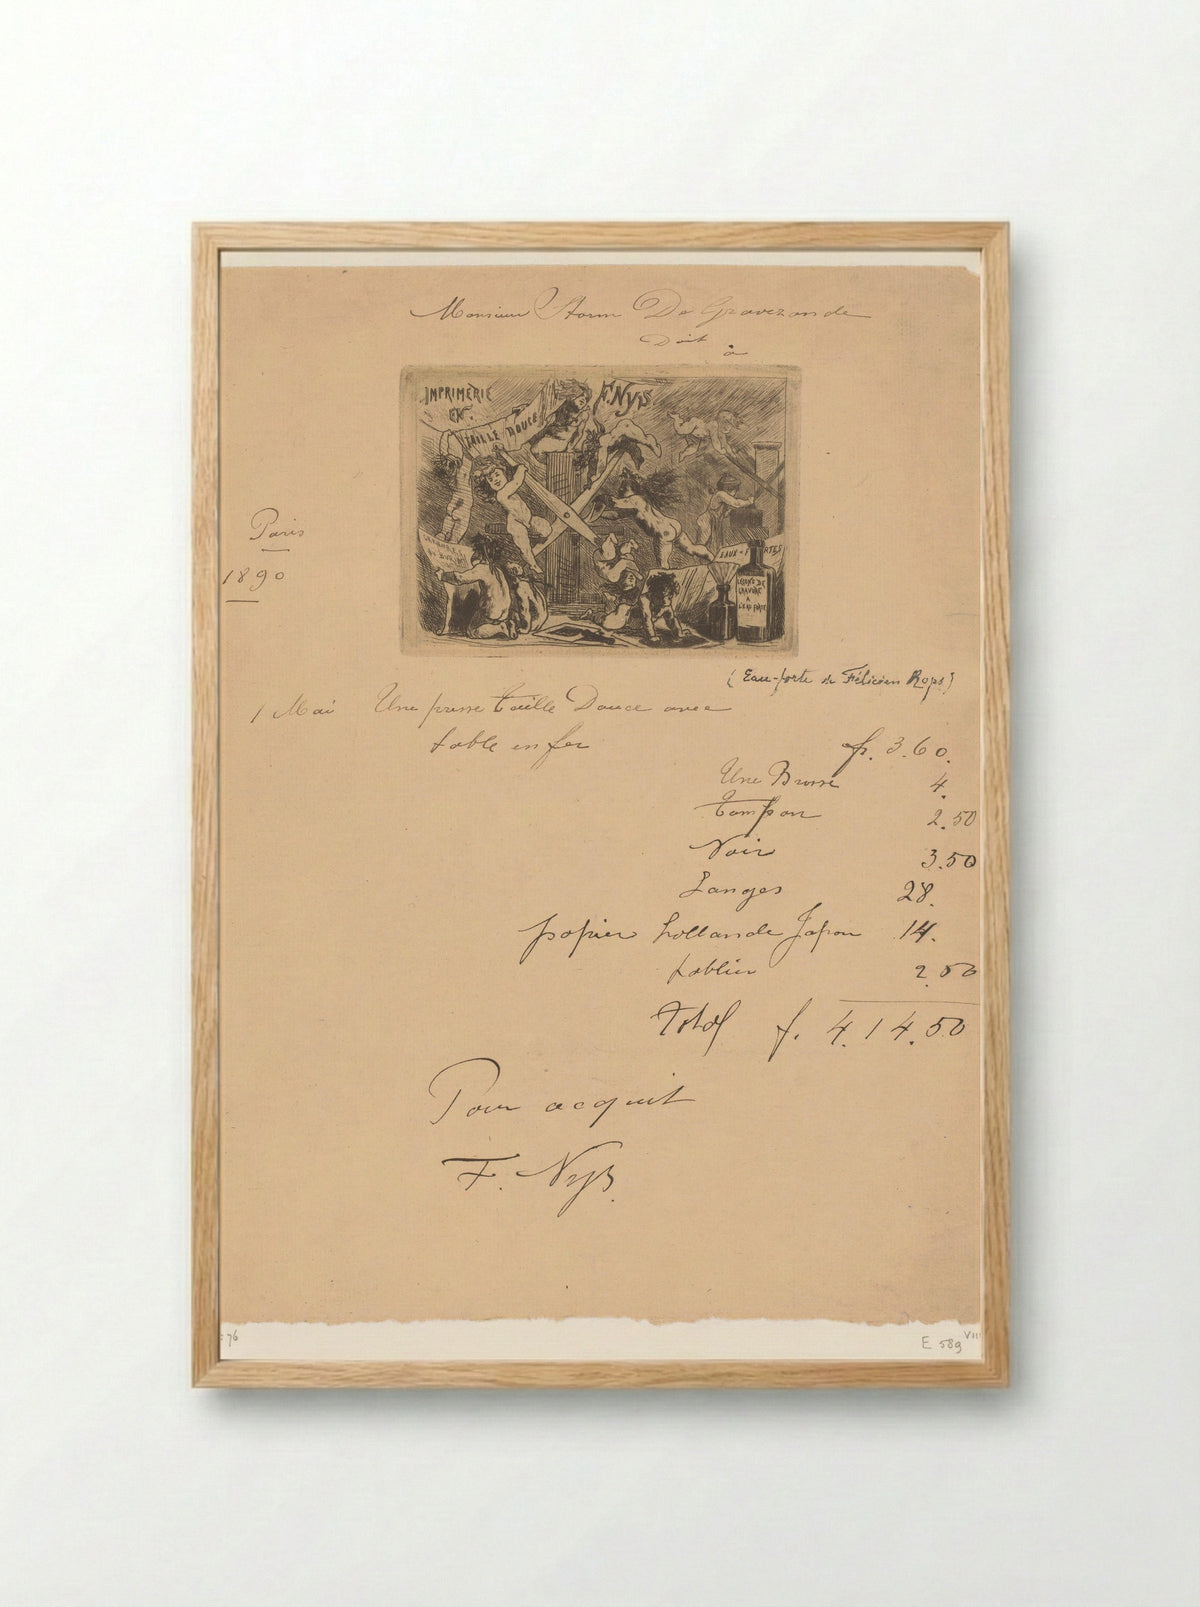 Monsieur Storm De Gravezande
Doit
à
IMPRIMERIE
EN
TAILLE DOUCE
F. NyS
Paris
1890
EAUX-FORTES
LEÇONS DE
GRAVURE
A
L'EAU FORTE
(Eau-forte de Félicien Rops)
1 Mai Une presse taille Douce avec
table en fer
fr. 3.60.
Une Brosse 4.
tampon 2.50
Noir 3.50
Langes 28.
papier hollande Japon 14.
tablier 2.50
Total f. 4.14.50
Pour acquit
F. Nys.
: 76
E 589 VIII